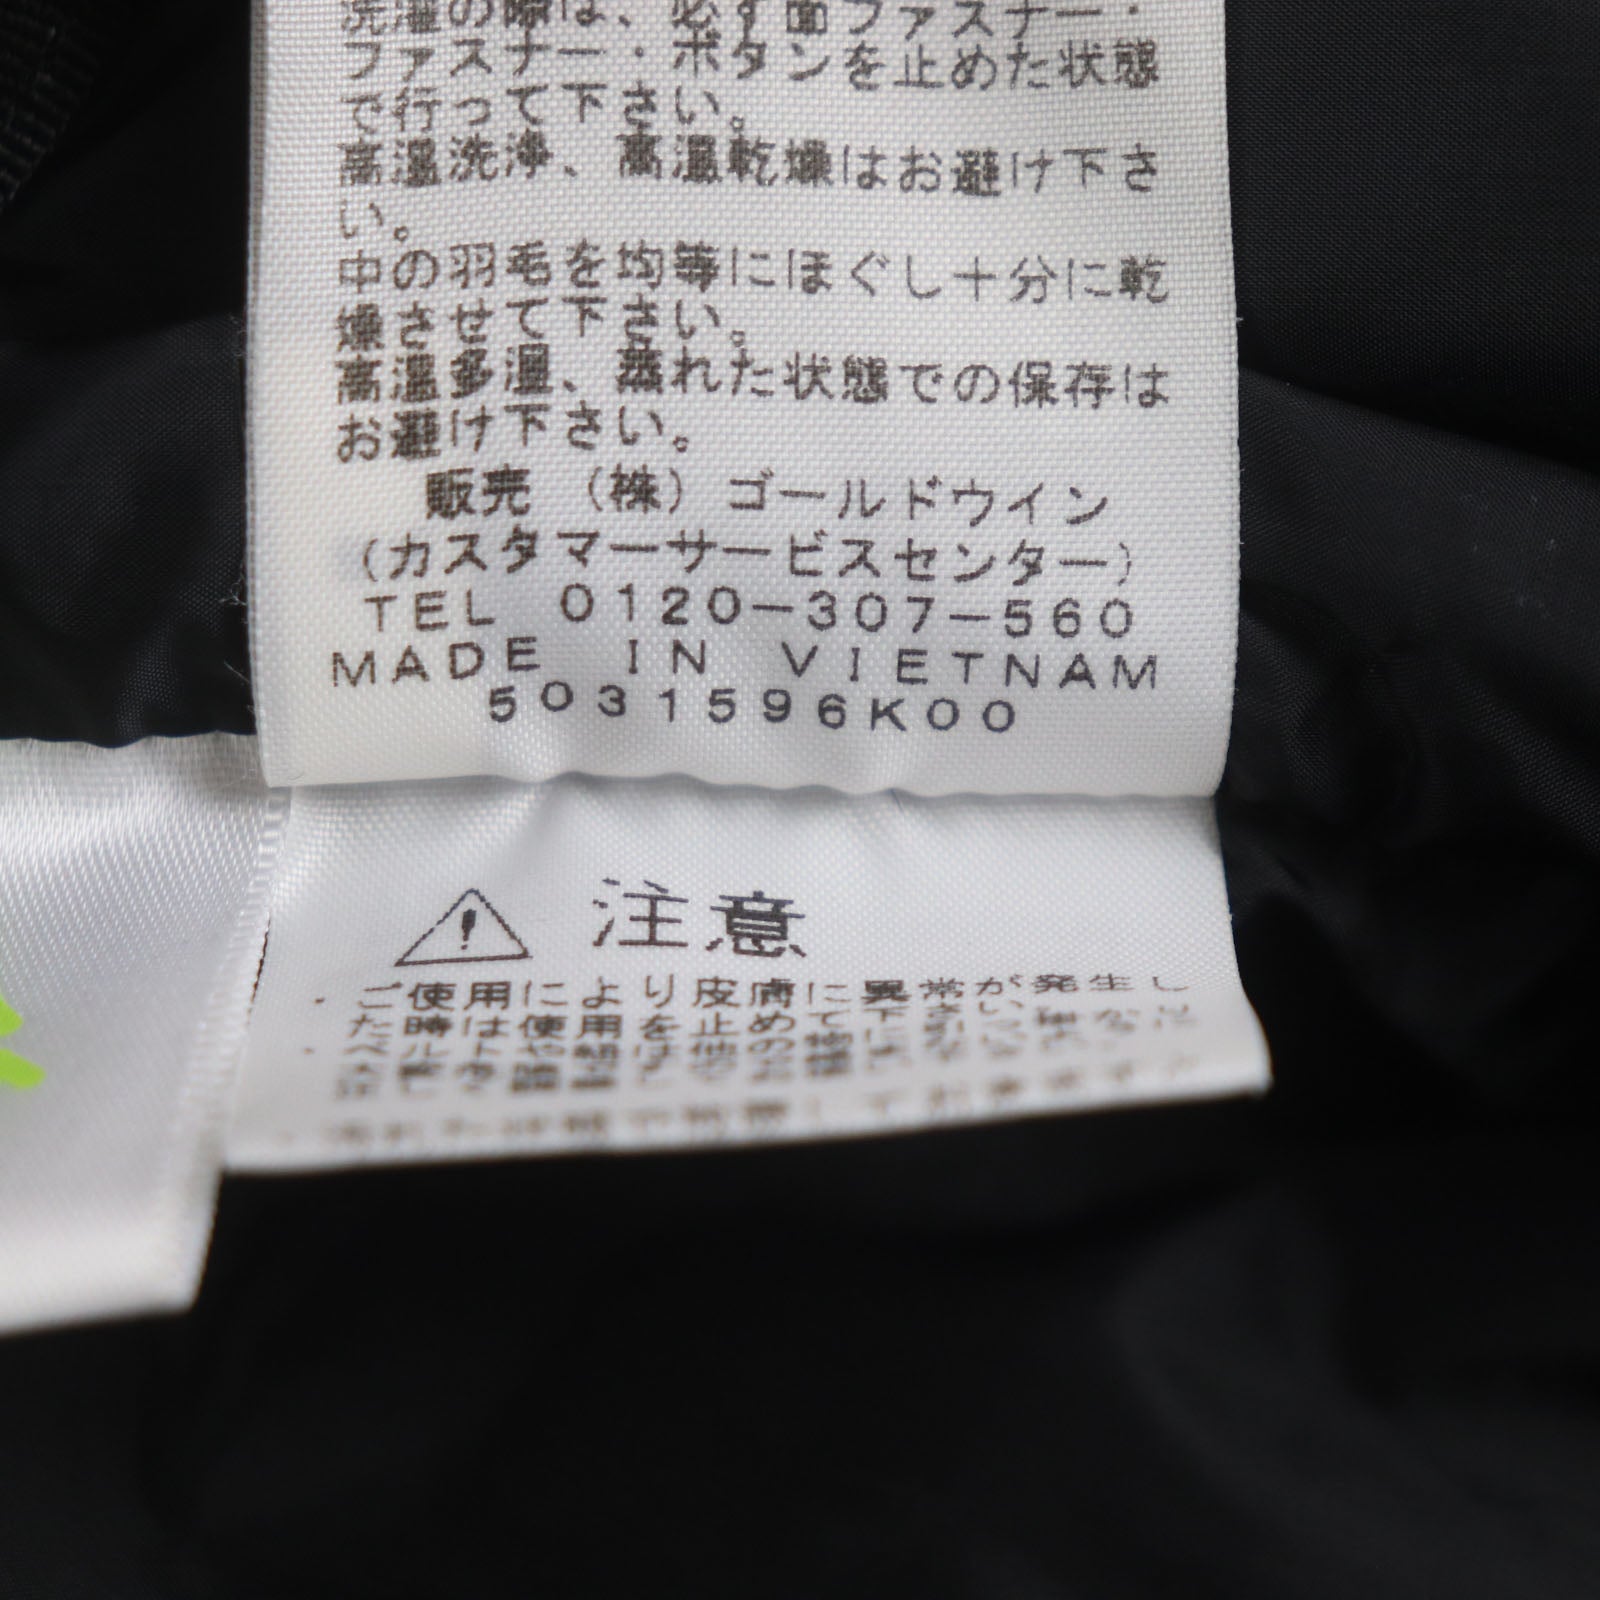 洗濯の際は、必ず面ファスナー・
ファスナー・ボタンを止めた状態
で行って下さい。
高温洗浄、高温乾燥はお避け下さ
い。
中の羽毛を均等にほぐし十分に乾
燥させて下さい。
高温多湿、蒸れた状態での保存は
お避け下さい。
販売 (株) ゴールドウイン
(カスタマーサービスセンター)
TEL 0120-307-560
MADE IN VIETNAM
5031596K00
注意
・ご使用により皮膚に異常が発生し
た時は使用を止めて下さい